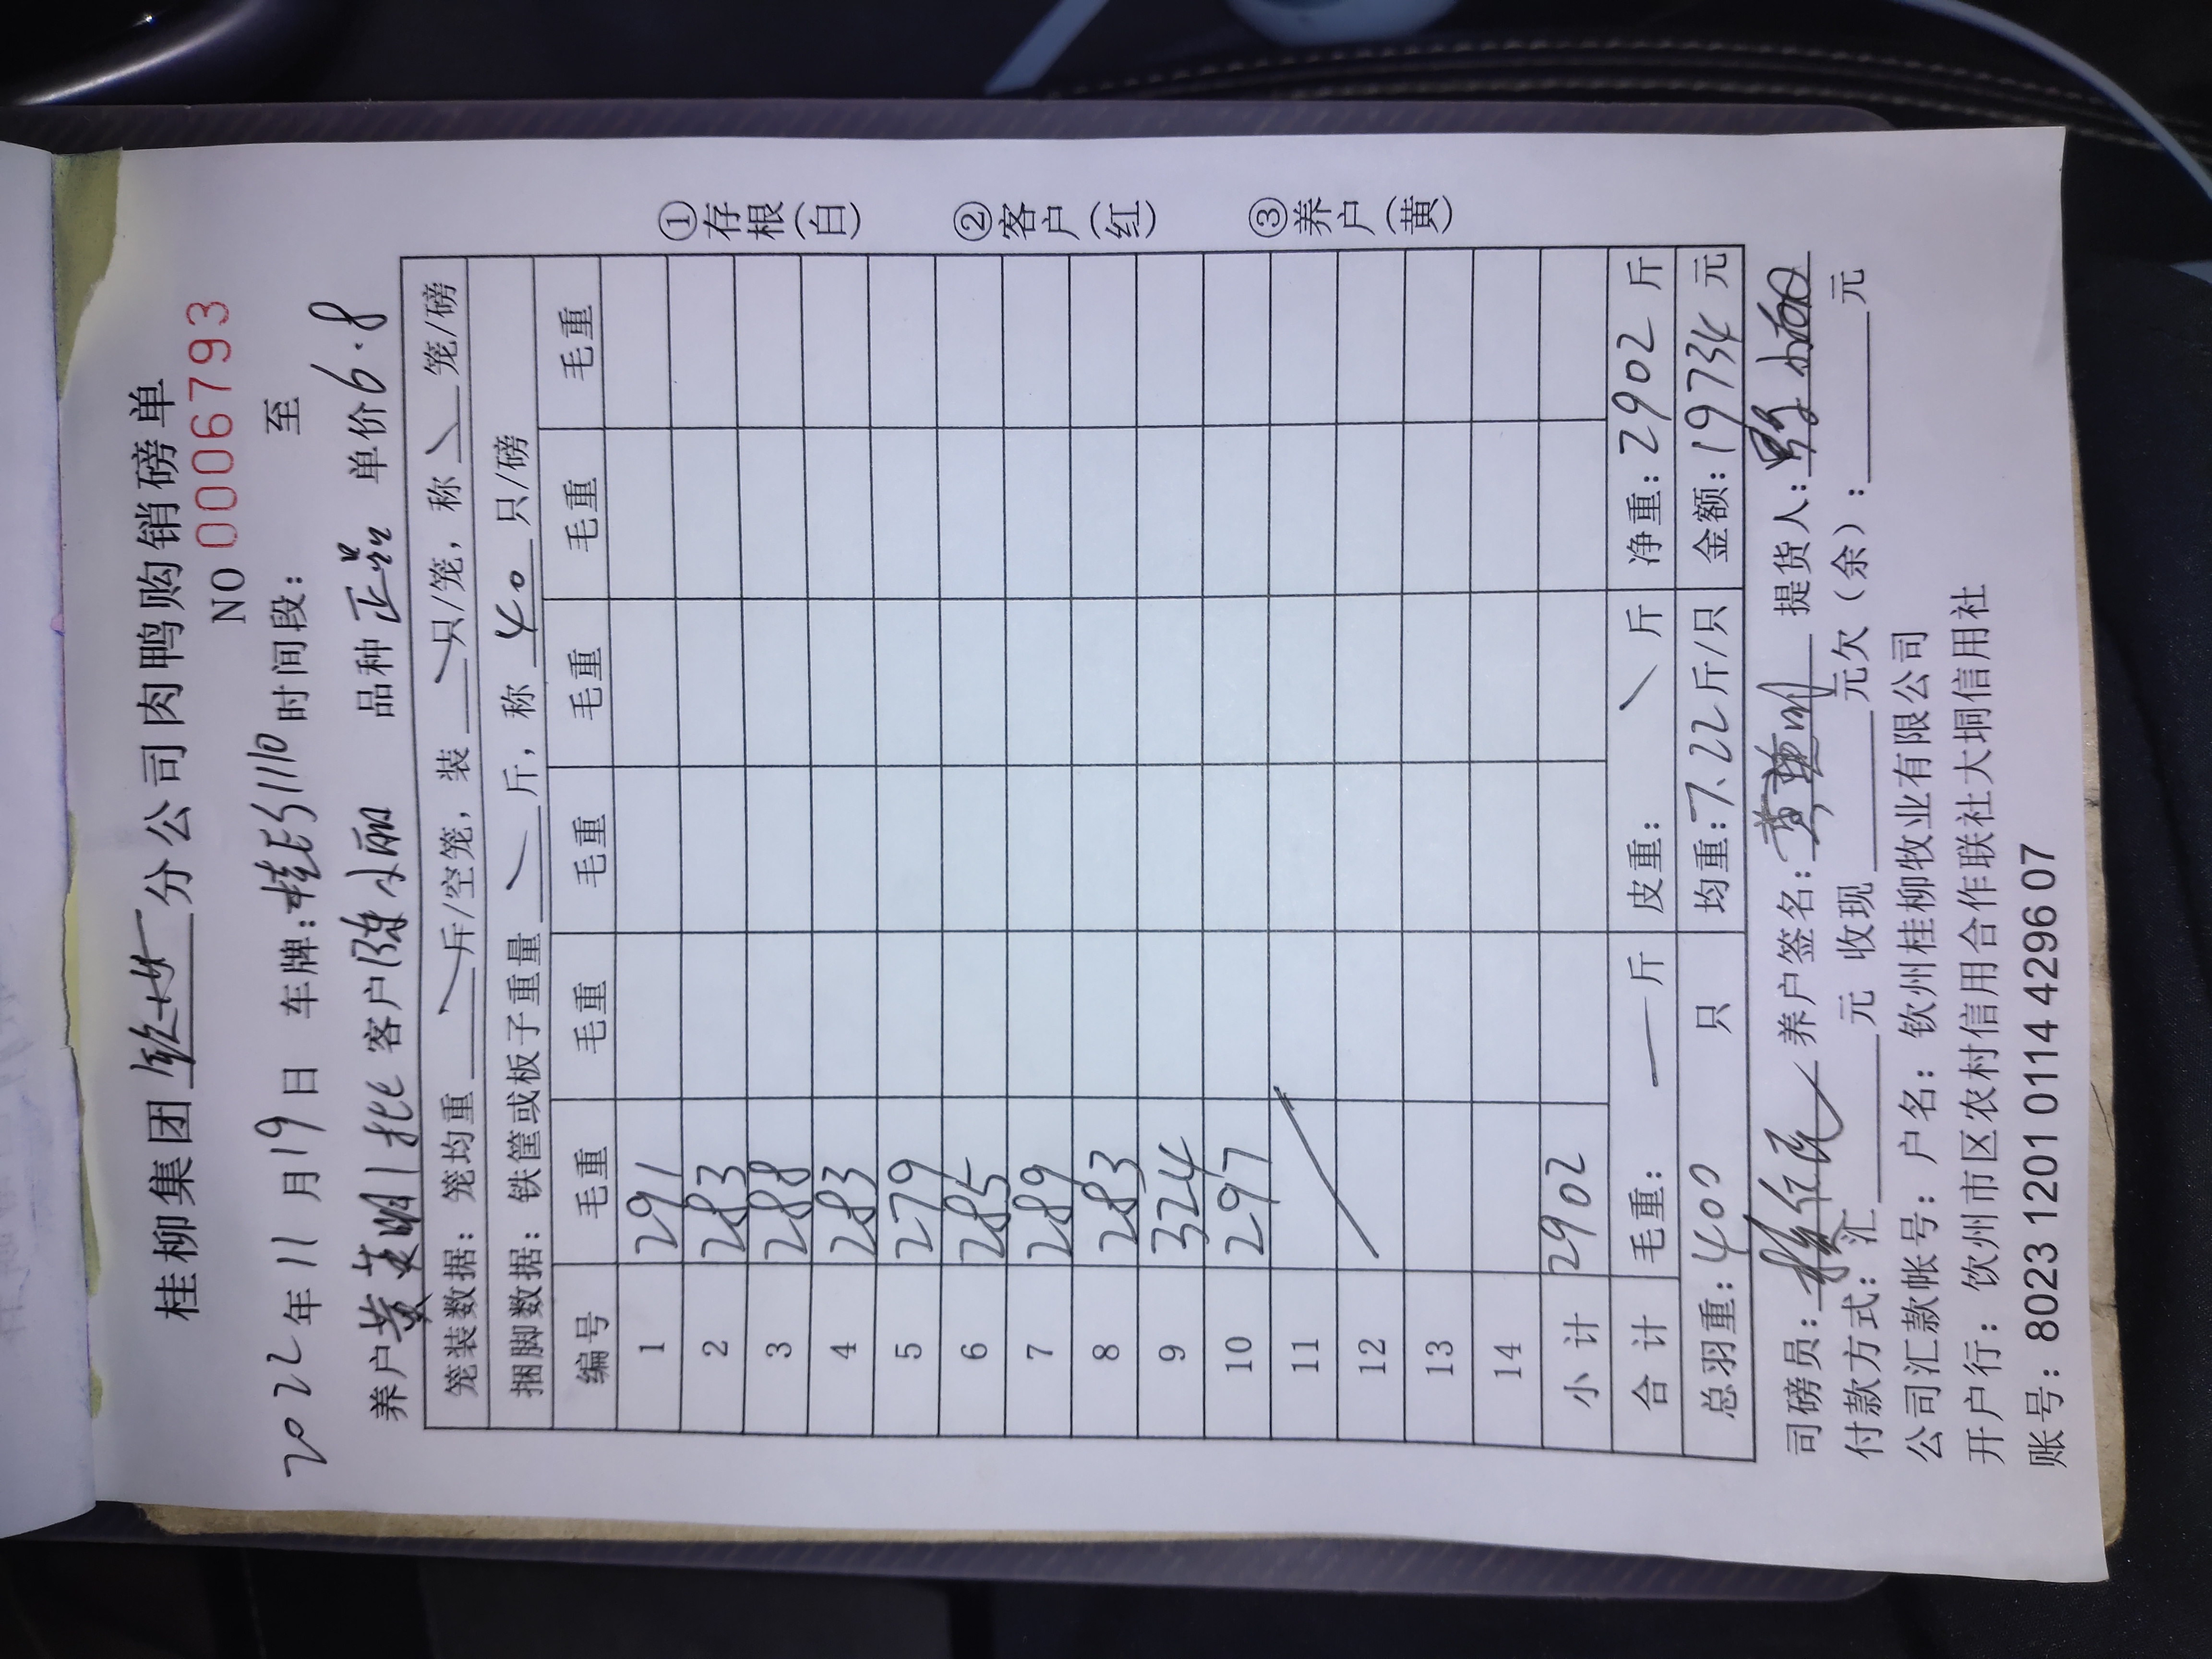 桂柳集团 钦州 分公司肉鸭购销磅单
NO 0006793
2022年11月19日 车牌:桂E51110 时间段: 至
养户黄 明 北 客户陈小丽 品种 正品 单价6.8
笼装数据: 笼均重 斤/空笼, 装 只/笼, 称 笼/磅
捆脚数据: 铁筐或板子重量 斤, 称 40 只/磅
编号 毛重 毛重 毛重 毛重 毛重 毛重
1 291
2 283
3 288
4 283
5 279
6 285
7 289
8 283
9 324
10 297
11
12
13
14
小计 2902
合计 毛重: 一 斤 皮重: 斤 净重: 2902 斤
总羽重: 400 只 均重: 7.22斤/只 金额: 19734 元
①存根(白)
②客户(红)
③养户(黄)
司磅员: 养户签名: 提货人:
付款方式: 汇 元 收现 元欠(余): 元
公司汇款帐号: 户名: 钦州桂柳牧业有限公司
开户行: 饮州市区农村信用合作联社大垌信用社
账号: 8023 1201 0114 4296 07